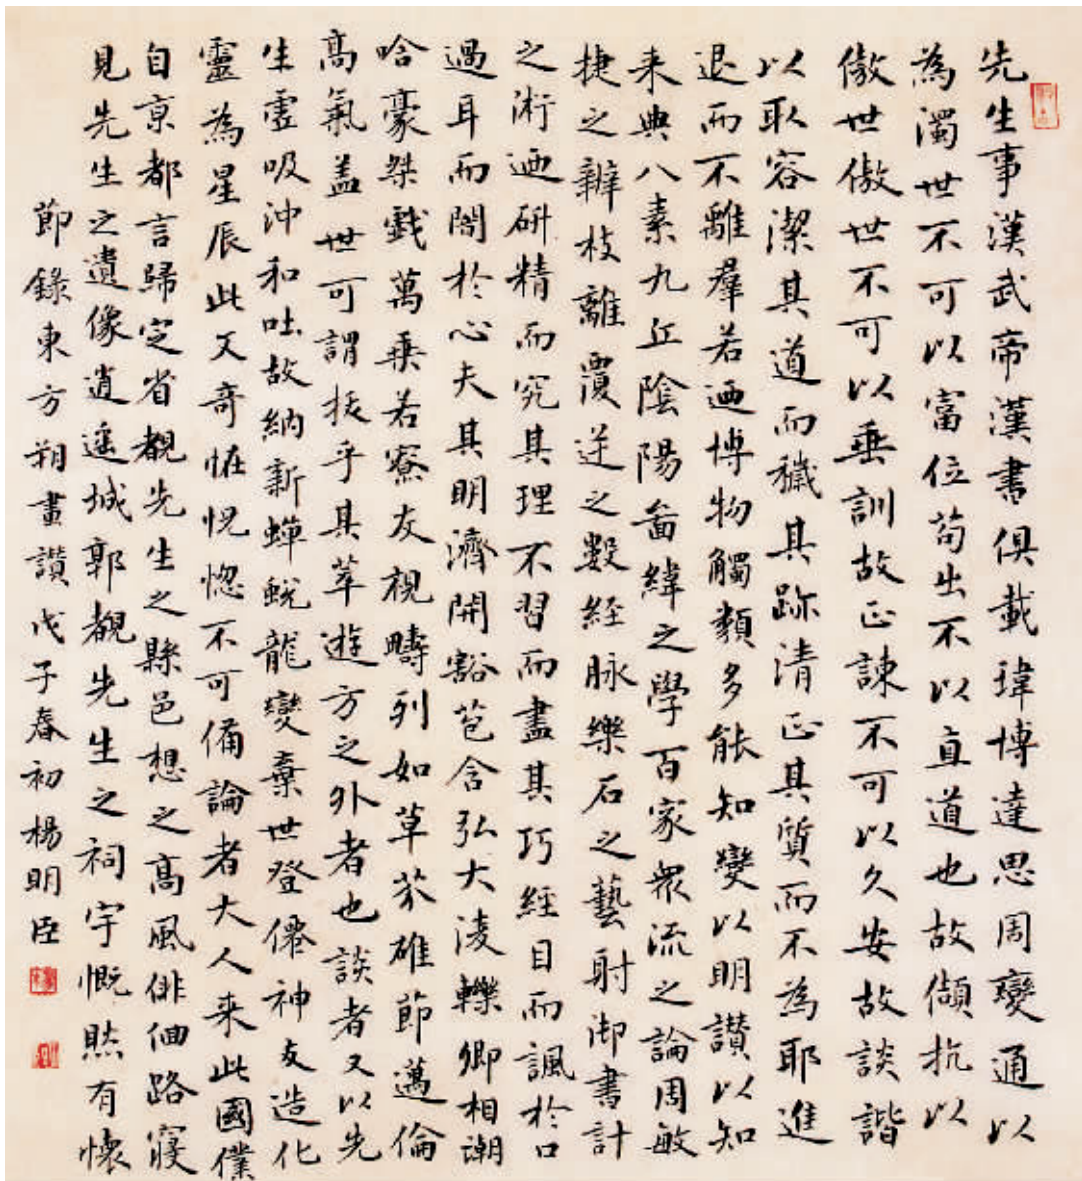 先生事漢武帝漢書俱載瑋博達思周變通以
為濁世不可以富位苟出不以直道也故傾抗以
傲世傲世不可以垂訓故正諫不可以久安故談諧
以取容潔其道而穢其跡清正其質而不為耶進
退而不離羣若迺博物觸類多能知變以明讃以知
来典八素九丘陰陽啚緯之學百家衆流之論周敏
捷之辦枝離覆逆之數経脉樂石之藝射御書計
之術迺研精而究其理不習而盡其巧經目而諷於口
過耳而闇於心夫其明濟開豁苞含弘大淩轢卿相謿
哈豪桀戲萬乗若寮友視疇列如草芥雄節邁倫
高氣盖世可謂拔乎其萃遊方之外者也談者又以先
生虛吸沖和吐故納新蟬蛻龍變棄世登僊神友造化
靈為星辰此又奇恠恍惚不可備論者大人来此國僕
自亰都言歸定省覩先生之縣邑想之高風俳佪路寢
見先生之遺像逍遥城郭覩先生之祠宇慨然有懷
節錄東方朔畫讃戊子春初楊明臣